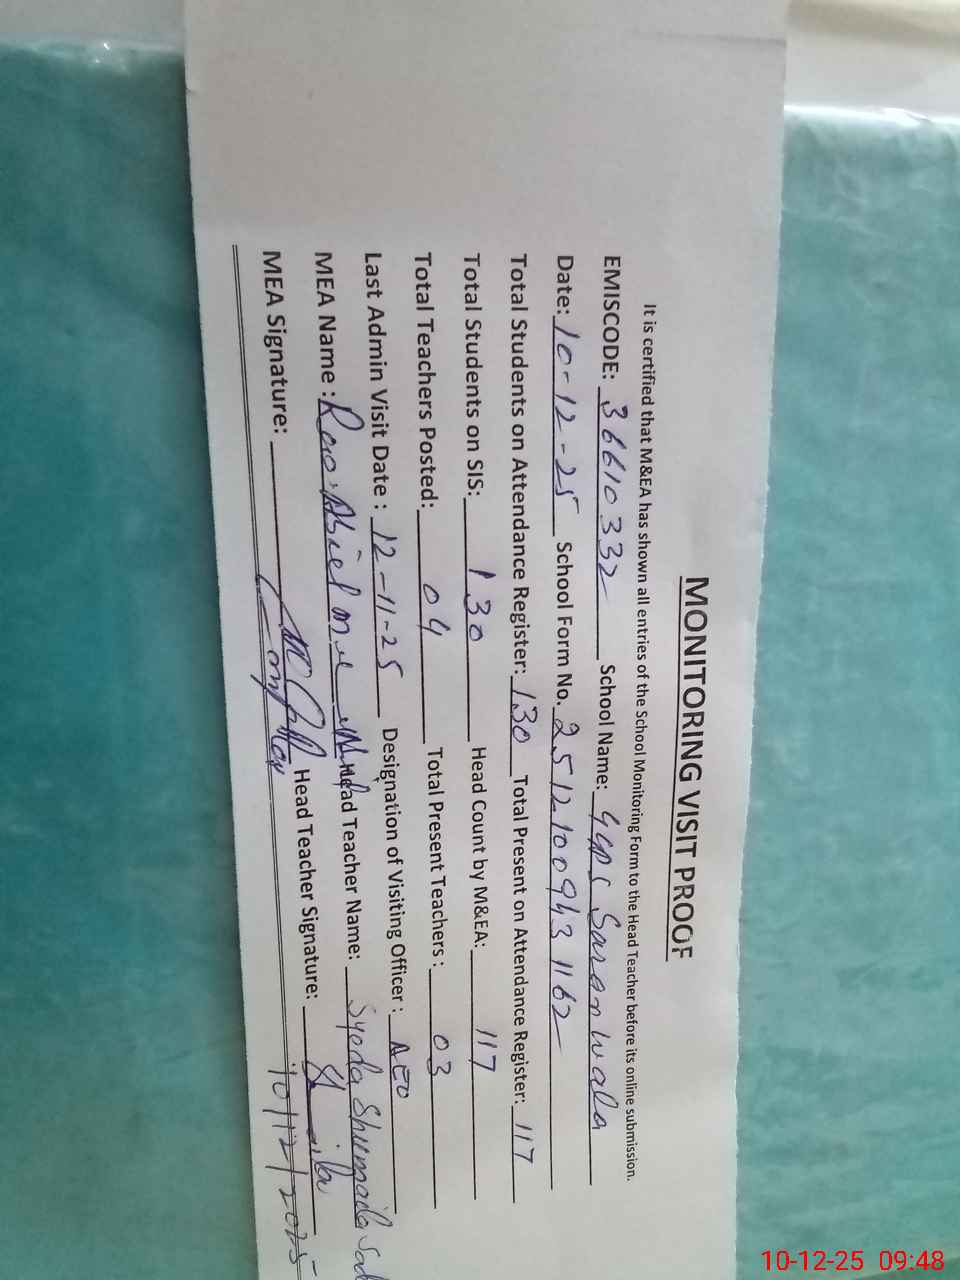 MONITORING VISIT PROOF
It is certified that M&EA has shown all entries of the School Monitoring Form to the Head Teacher before its online submission.
EMISCODE: 36610332 School Name: GGPS Saranwala
Date: 10-12-25 School Form No. 2512100943 1162
Total Students on Attendance Register: 130 Total Present on Attendance Register: 117
Total Students on SIS: 130 Head Count by M&EA: 117
Total Teachers Posted: 04 Total Present Teachers: 03
Last Admin Visit Date: 12-11-25 Designation of Visiting Officer: AEO
MEA Name: Rao Head Teacher Name: Syeda Shumaila
MEA Signature: Head Teacher Signature:
10/12/2025
10-12-25 09:48